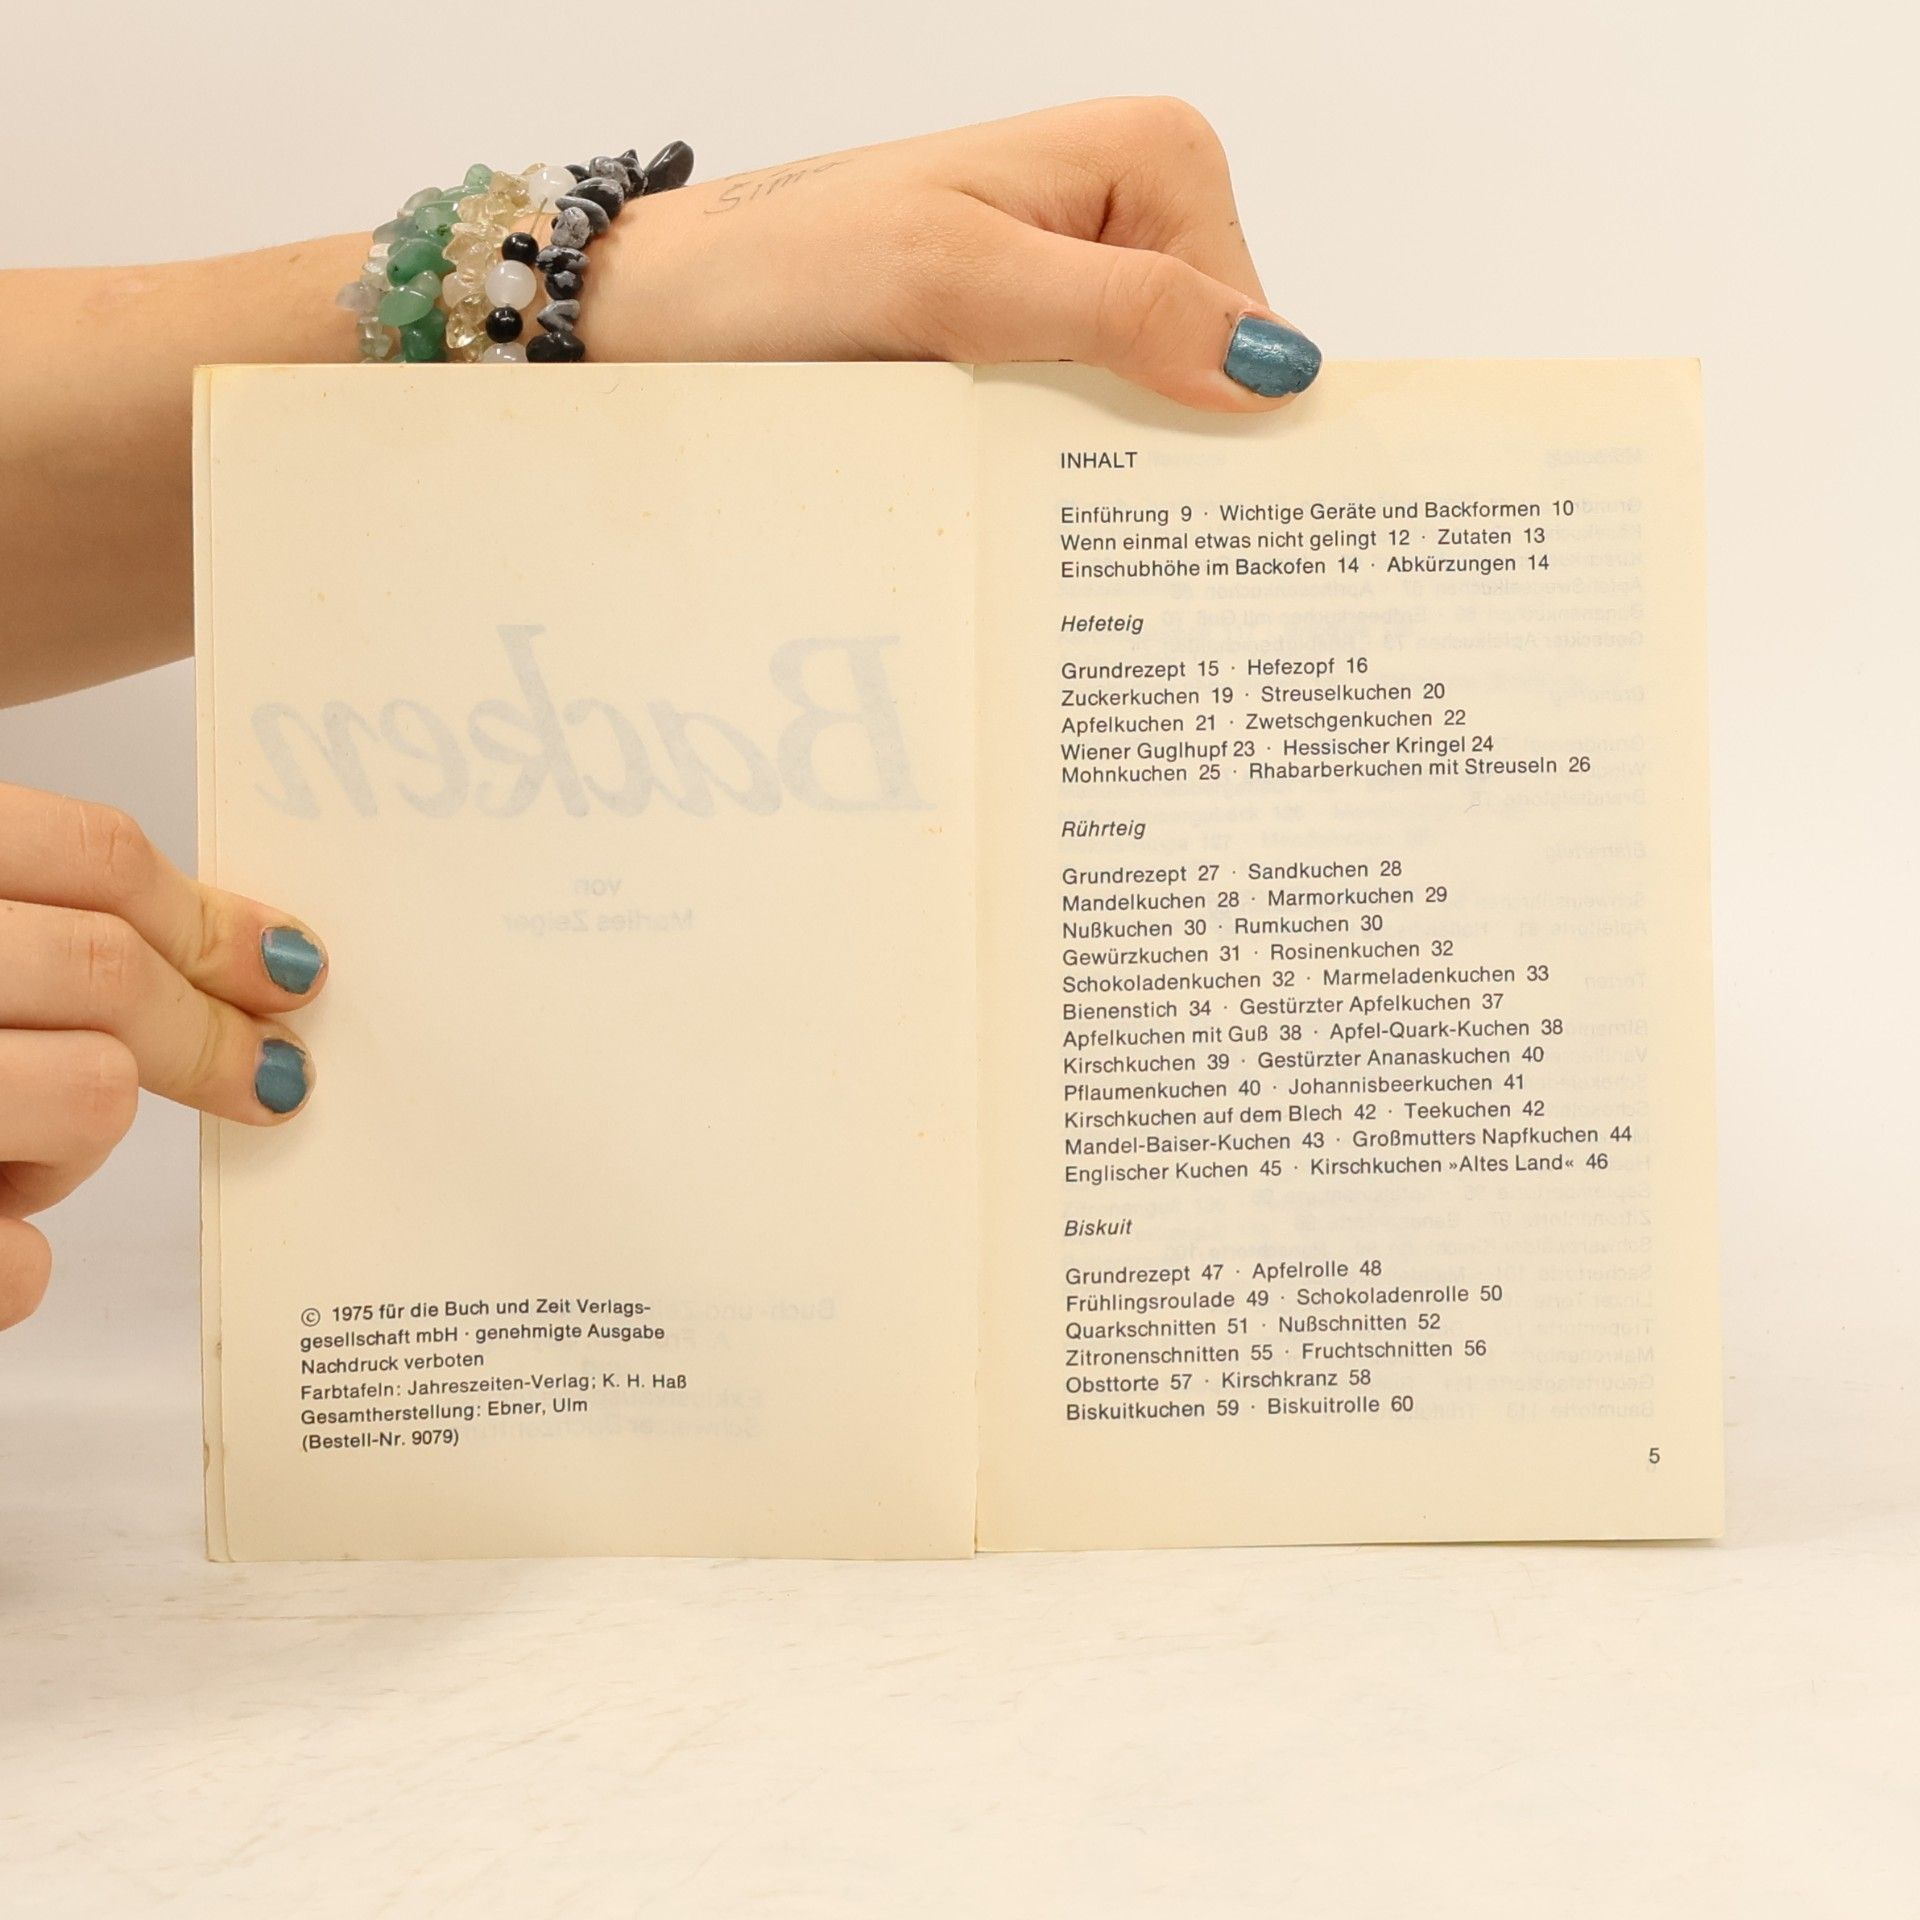 Simo
Backen
von
Marlies Zeiger
© 1975 für die Buch und Zeit Verlags-
gesellschaft mbH · genehmigte Ausgabe
Nachdruck verboten
Farbtafeln: Jahreszeiten-Verlag; K. H. Haß
Gesamtherstellung: Ebner, Ulm
(Bestell-Nr. 9079)
INHALT
Einführung 9 · Wichtige Geräte und Backformen 10
Wenn einmal etwas nicht gelingt 12 · Zutaten 13
Einschubhöhe im Backofen 14 · Abkürzungen 14
Hefeteig
Grundrezept 15 · Hefezopf 16
Zuckerkuchen 19 · Streuselkuchen 20
Apfelkuchen 21 · Zwetschgenkuchen 22
Wiener Guglhupf 23 · Hessischer Kringel 24
Mohnkuchen 25 · Rhabarberkuchen mit Streuseln 26
Rührteig
Grundrezept 27 · Sandkuchen 28
Mandelkuchen 28 · Marmorkuchen 29
Nußkuchen 30 · Rumkuchen 30
Gewürzkuchen 31 · Rosinenkuchen 32
Schokoladenkuchen 32 · Marmeladenkuchen 33
Bienenstich 34 · Gestürzter Apfelkuchen 37
Apfelkuchen mit Guß 38 · Apfel-Quark-Kuchen 38
Kirschkuchen 39 · Gestürzter Ananaskuchen 40
Pflaumenkuchen 40 · Johannisbeerkuchen 41
Kirschkuchen auf dem Blech 42 · Teekuchen 42
Mandel-Baiser-Kuchen 43 · Großmutters Napfkuchen 44
Englischer Kuchen 45 · Kirschkuchen »Altes Land« 46
Biskuit
Grundrezept 47 · Apfelrolle 48
Frühlingsroulade 49 · Schokoladenrolle 50
Quarkschnitten 51 · Nußschnitten 52
Zitronenschnitten 55 · Fruchtschnitten 56
Obsttorte 57 · Kirschkranz 58
Biskuitkuchen 59 · Biskuitrolle 60
5